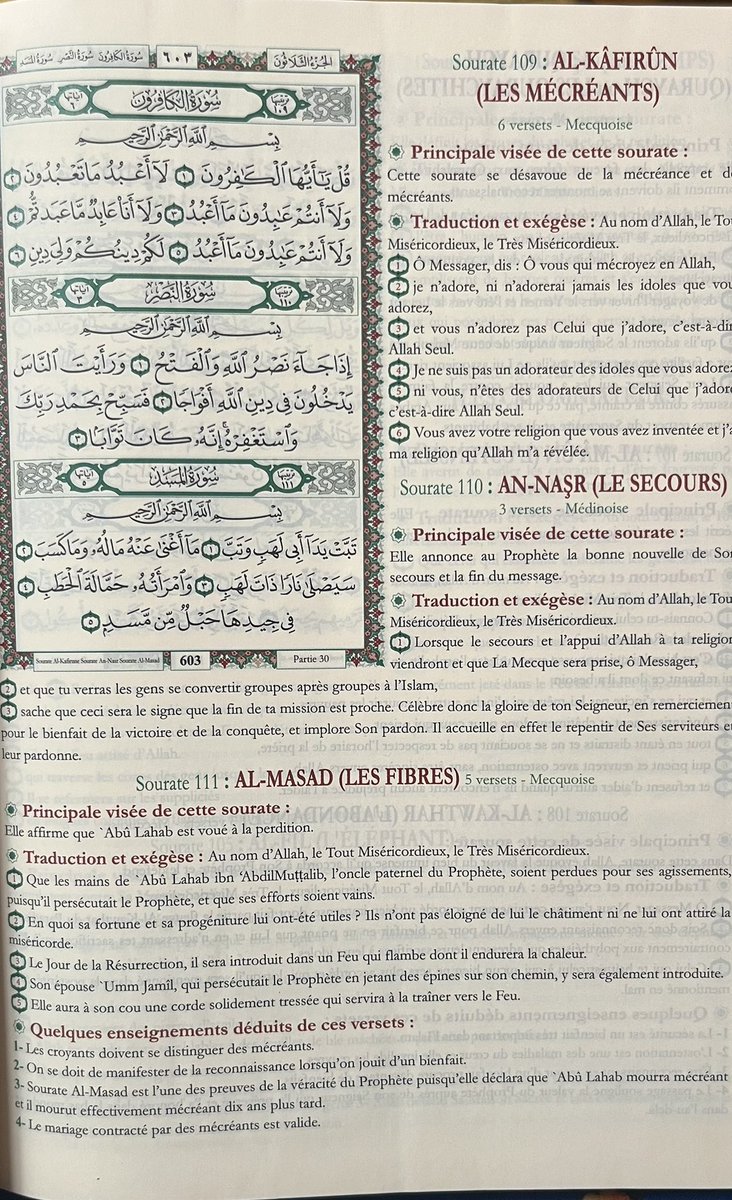 سُورَةُ الكَافِرُونَ سُورَةُ النَّصْرِ سُورَةُ المَسَد
٦٠٣
الجُزءُ الثَّلَاثُونَ
سُورَةُ الكَافِرُونَ
بِسْمِ اللَّهِ الرَّحْمَٰنِ الرَّحِيمِ
قُلْ يَٰٓأَيُّهَا ٱلْكَٰفِرُونَ ١ لَآ أَعْبُدُ مَا تَعْبُدُونَ ٢
وَلَآ أَنتُمْ عَٰبِدُونَ مَآ أَعْبُدُ ٣ وَلَآ أَنَا۠ عَابِدٌ مَّا عَبَدتُّمْ ٤
وَلَآ أَنتُمْ عَٰبِدُونَ مَآ أَعْبُدُ ٥ لَكُمْ دِينُكُمْ وَلِىَ دِينِ ٦
سُورَةُ النَّصْرِ
بِسْمِ اللَّهِ الرَّحْمَٰنِ الرَّحِيمِ
إِذَا جَآءَ نَصْرُ ٱللَّهِ وَٱلْفَتْحُ ١ وَرَأَيْتَ ٱلنَّاسَ
يَدْخُلُونَ فِى دِينِ ٱللَّهِ أَفْوَاجًا ٢ فَسَبِّحْ بِحَمْدِ رَبِّكَ
وَٱسْتَغْفِرْهُ إِنَّهُۥ كَانَ تَوَّابًۢا ٣
سُورَةُ المَسَدِ
بِسْمِ اللَّهِ الرَّحْمَٰنِ الرَّحِيمِ
تَبَّتْ يَدَآ أَبِى لَهَبٍ وَتَبَّ ١ مَآ أَغْنَىٰ عَنْهُ مَالُهُۥ وَمَا كَسَبَ ٢
سَيَصْلَىٰ نَارًا ذَاتَ لَهَبٍ ٣ وَٱمْرَأَتُهُۥ حَمَّالَةَ ٱلْحَطَبِ ٤
فِى جِيدِهَا حَبْلٌ مِّن مَّسَدٍۭ ٥
603
Partie 30
Sourate 109 : AL-KÂFIRÛN
(LES MÉCRÉANTS)
6 versets - Mecquoise
Principale visée de cette sourate :
Cette sourate se désavoue de la mécréance et de
mécréants.
Traduction et exégèse : Au nom d'Allah, le Tou
Miséricordieux, le Très Miséricordieux.
1 Ô Messager, dis : Ô vous qui mécroyez en Allah,
2 je n'adore, ni n'adorerai jamais les idoles que vou
adorez,
3 et vous n'adorez pas Celui que j'adore, c'est-à-dir
Allah Seul.
4 Je ne suis pas un adorateur des idoles que vous adorez
5 ni vous, n'êtes des adorateurs de Celui que j'adore
c'est-à-dire Allah Seul.
6 Vous avez votre religion que vous avez inventée et j'a
ma religion qu'Allah m'a révélée.
Sourate 110 : AN-NAṢR (LE SECOURS)
3 versets - Médinoise
Principale visée de cette sourate :
Elle annonce au Prophète la bonne nouvelle de Son
secours et la fin du message.
Traduction et exégèse : Au nom d'Allah, le Tou
Miséricordieux, le Très Miséricordieux.
1 Lorsque le secours et l'appui d'Allah à ta religion
viendront et que La Mecque sera prise, ô Messager,
2 et que tu verras les gens se convertir groupes après groupes à l'Islam,
3 sache que ceci sera le signe que la fin de ta mission est proche. Célèbre donc la gloire de ton Seigneur, en remerciemen
pour le bienfait de la victoire et de la conquête, et implore Son pardon. Il accueille en effet le repentir de Ses serviteurs e
leur pardonne.
Sourate 111 : AL-MASAD (LES FIBRES) 5 versets - Mecquoise
Principale visée de cette sourate :
Elle affirme que `Abû Lahab est voué à la perdition.
Traduction et exégèse : Au nom d'Allah, le Tout Miséricordieux, le Très Miséricordieux.
1 Que les mains de `Abû Lahab ibn 'AbdilMuṭṭalib, l'oncle paternel du Prophète, soient perdues pour ses agissements,
puisqu'il persécutait le Prophète, et que ses efforts soient vains.
2 En quoi sa fortune et sa progéniture lui ont-été utiles ? Ils n'ont pas éloigné de lui le châtiment ni ne lui ont attiré la
miséricorde.
3 Le Jour de la Résurrection, il sera introduit dans un Feu qui flambe dont il endurera la chaleur.
4 Son épouse `Umm Jamîl, qui persécutait le Prophète en jetant des épines sur son chemin, y sera également introduite.
5 Elle aura à son cou une corde solidement tressée qui servira à la traîner vers le Feu.
Quelques enseignements déduits de ces versets :
1- Les croyants doivent se distinguer des mécréants.
2- On se doit de manifester de la reconnaissance lorsqu'on jouit d'un bienfait.
3- Sourate Al-Masad est l'une des preuves de la véracité du Prophète puisqu'elle déclara que `Abû Lahab mourra mécréant
et il mourut effectivement mécréant dix ans plus tard.
4- Le mariage contracté par des mécréants est valide.